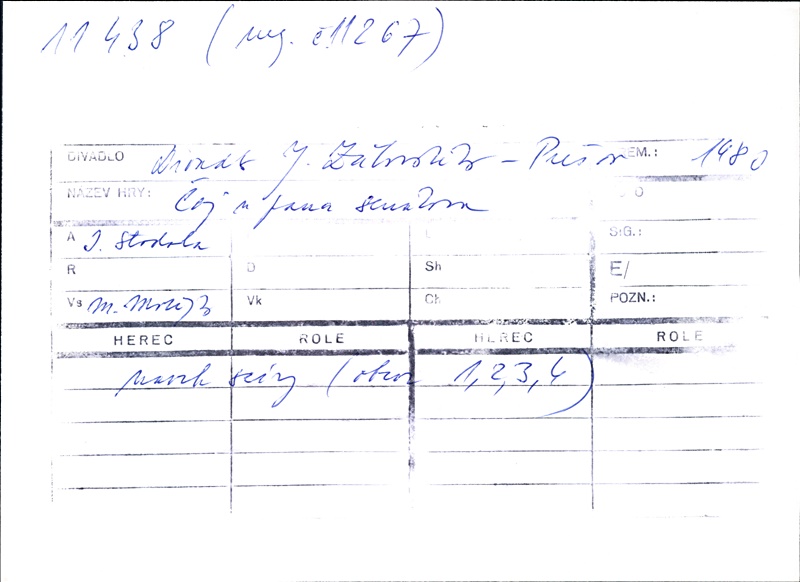 11438 (neg. č 11267)
DIVADLO Divadlo J. Záborského - Prešov PREM.: 1980
NÁZEV HRY: Čaj u pana senátora
A I. Stodola SIG.:
R D Sh E/
Vs M. Vk Ch POZN.:
HEREC ROLE HEREC ROLE
návrh scény (obraz 1,2,3,4)